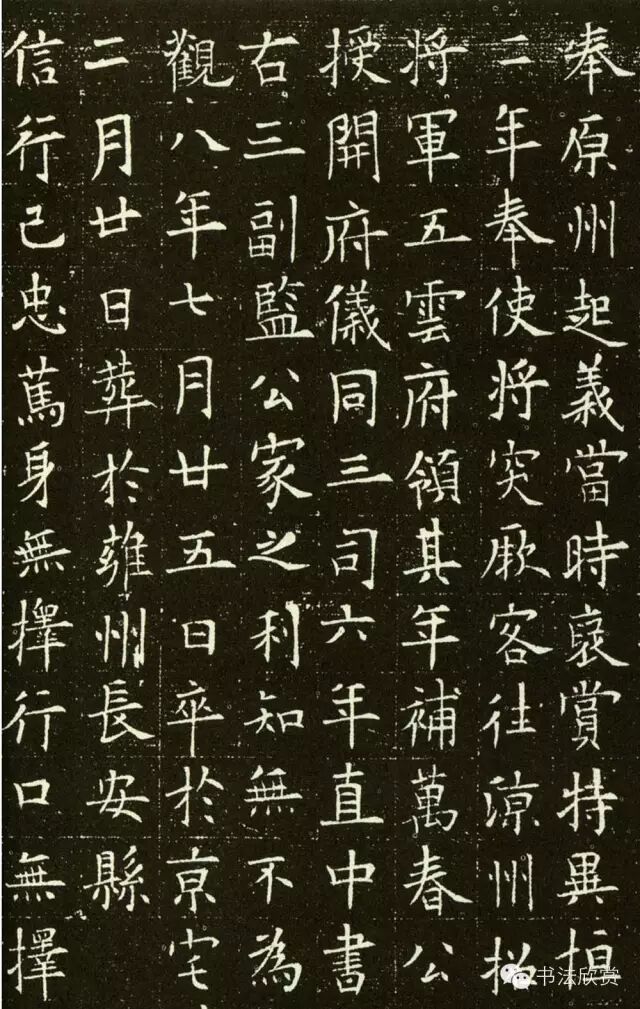 奉原州起義當時裒賞特異恒
二年奉使將突厥客往涼州
將軍五雲府領其年補萬春公
授開府儀同三司六年直中書
右三副監公家之利知無不為
觀八年七月廿五日卒於京宅
二月廿日葬於雍州長安縣
信行己忠篤身無擇行口無擇
书法欣赏